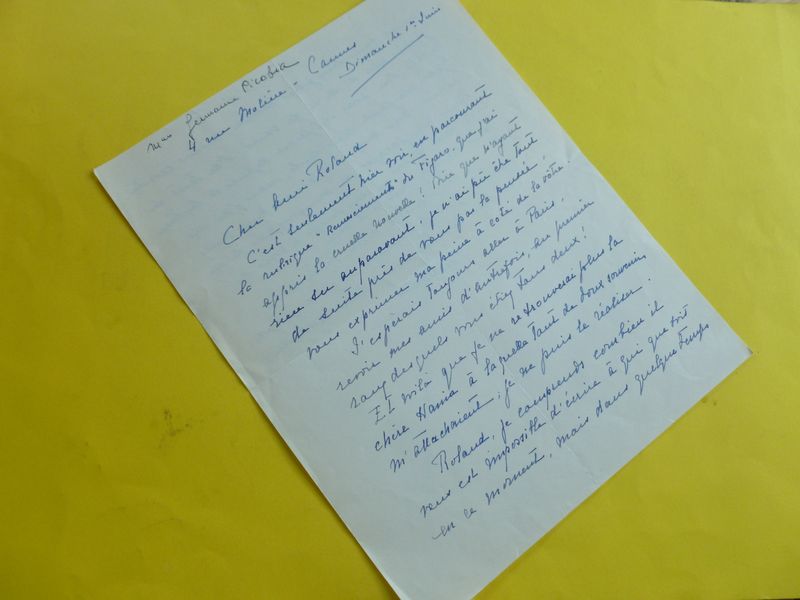 Mme Germaine Picabia
4 rue Molière - Cannes
Dimanche 1er Juin
Cher Ami Roland
C'est seulement hier soir, en parcourant
la rubrique "Remerciements" du Figaro, que j'ai
appris la cruelle nouvelle! Dire que n'ayant
rien su auparavant, je n'ai pu être tout
de suite près de vous par la pensée,
vous exprimer ma peine à côté de la vôtre!
J'espérais toujours aller à Paris,
revoir mes amis d'autrefois, au premier
rang desquels vous étiez tous deux!
Et voilà que je ne retrouverai plus la
chère Hania à laquelle tant de doux souvenirs
m'attachaient, je ne puis le réaliser.
Roland, je comprends combien il
vous est impossible d'écrire à qui que soit
en ce moment, mais dans quelque temps